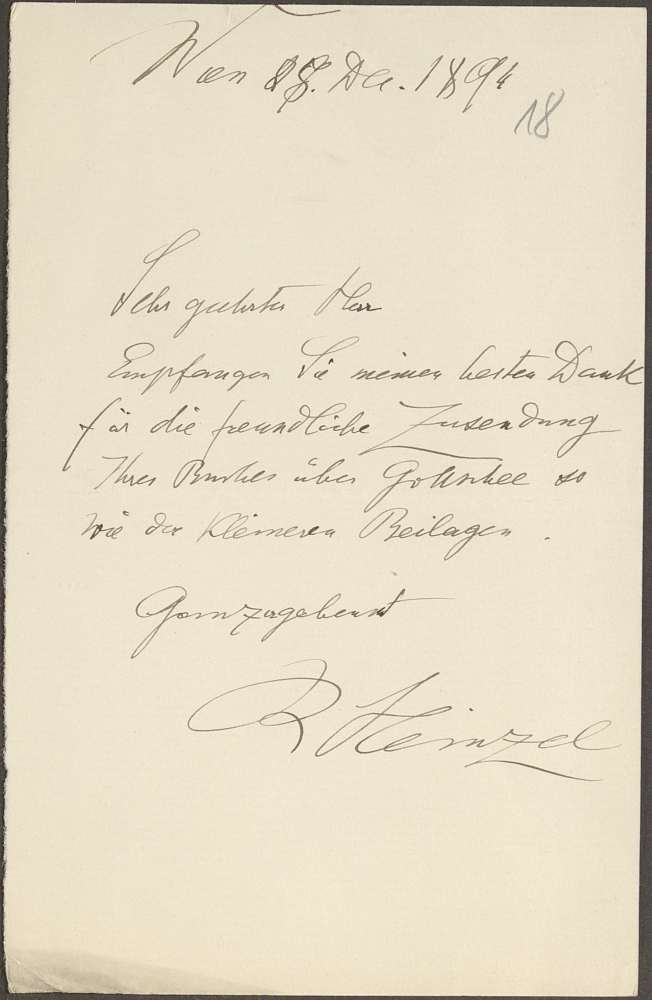 Wien 28. Dec. 1894
18
Sehr geehrter Herr
Empfangen Sie meinen besten Dank
für die freundliche Zusendung
Ihres Buches über Gottschee so
wie der kleineren Beilagen.
Ganz ergebenst
R Heinzel